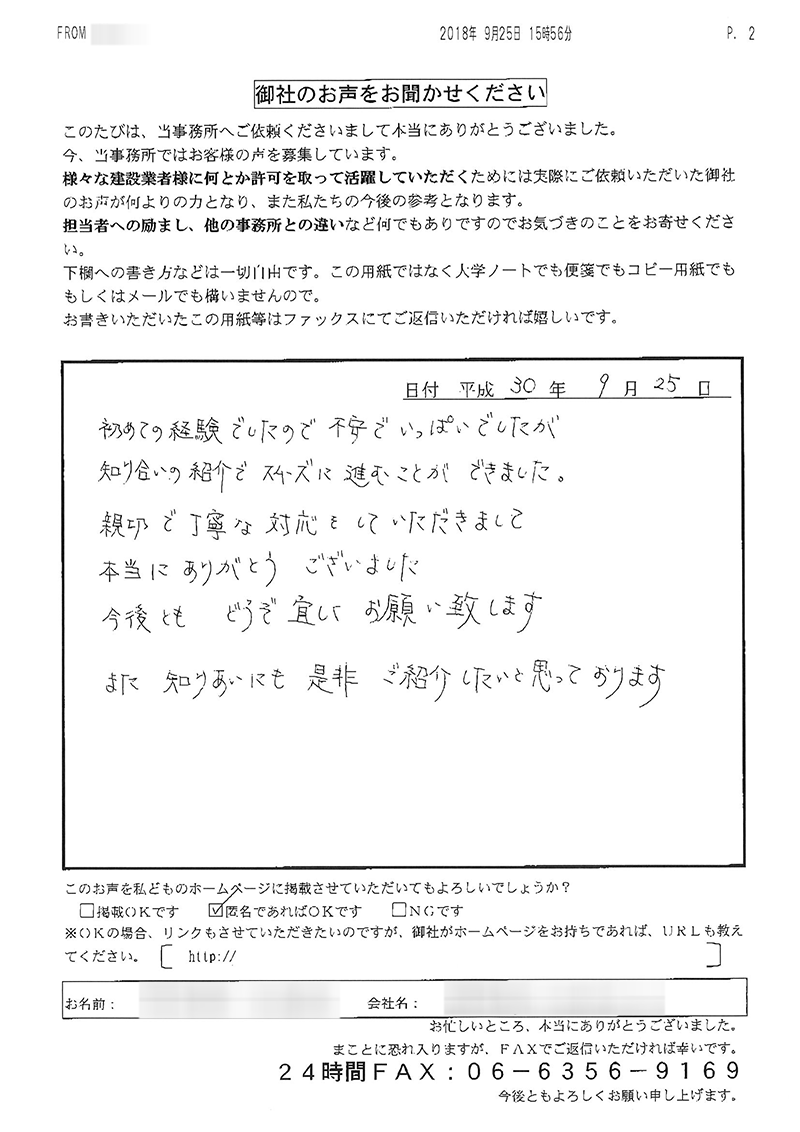 FROM
2018年 9月25日 15時56分
P. 2
御社のお声をお聞かせください
このたびは、当事務所へご依頼くださいまして本当にありがとうございました。
今、当事務所ではお客様の声を募集しています。
様々な建設業者様に何とか許可を取って活躍していただくためには実際にご依頼いただいた御社
のお声が何よりの力となり、また私たちの今後の参考となります。
担当者への励まし、他の事務所との違いなど何でもありですのでお気づきのことをお寄せくださ
い。
下欄への書き方などは一切自由です。この用紙ではなく大学ノートでも便箋でもコピー用紙でも
もしくはメールでも構いませんので。
お書きいただいたこの用紙等はファックスにてご返信いただければ嬉しいです。
日付 平成 30 年 9 月 25 日
初めての経験でしたので 不安で いっぱいでしたが
知り合いの紹介で スムーズに 進むことが できました。
親切で丁寧な 対応を していただきまして
本当に ありがとう ございました
今後とも どうぞ 宜しく お願い致します
また 知りあいにも 是非 ご紹介したいと思っております
このお声を私どものホームページに掲載させていただいてもよろしいでしょうか?
□掲載OKです ☑匿名であればOKです □NGです
※OKの場合、リンクもさせていただきたいのですが、御社がホームページをお持ちであれば、URLも教え
てください。 [ http:// ]
お名前: 会社名:
お忙しいところ、本当にありがとうございました。
まことに恐れ入りますが、FAXでご返信いただければ幸いです。
24時間FAX:06-6356-9169
今後ともよろしくお願い申し上げます。